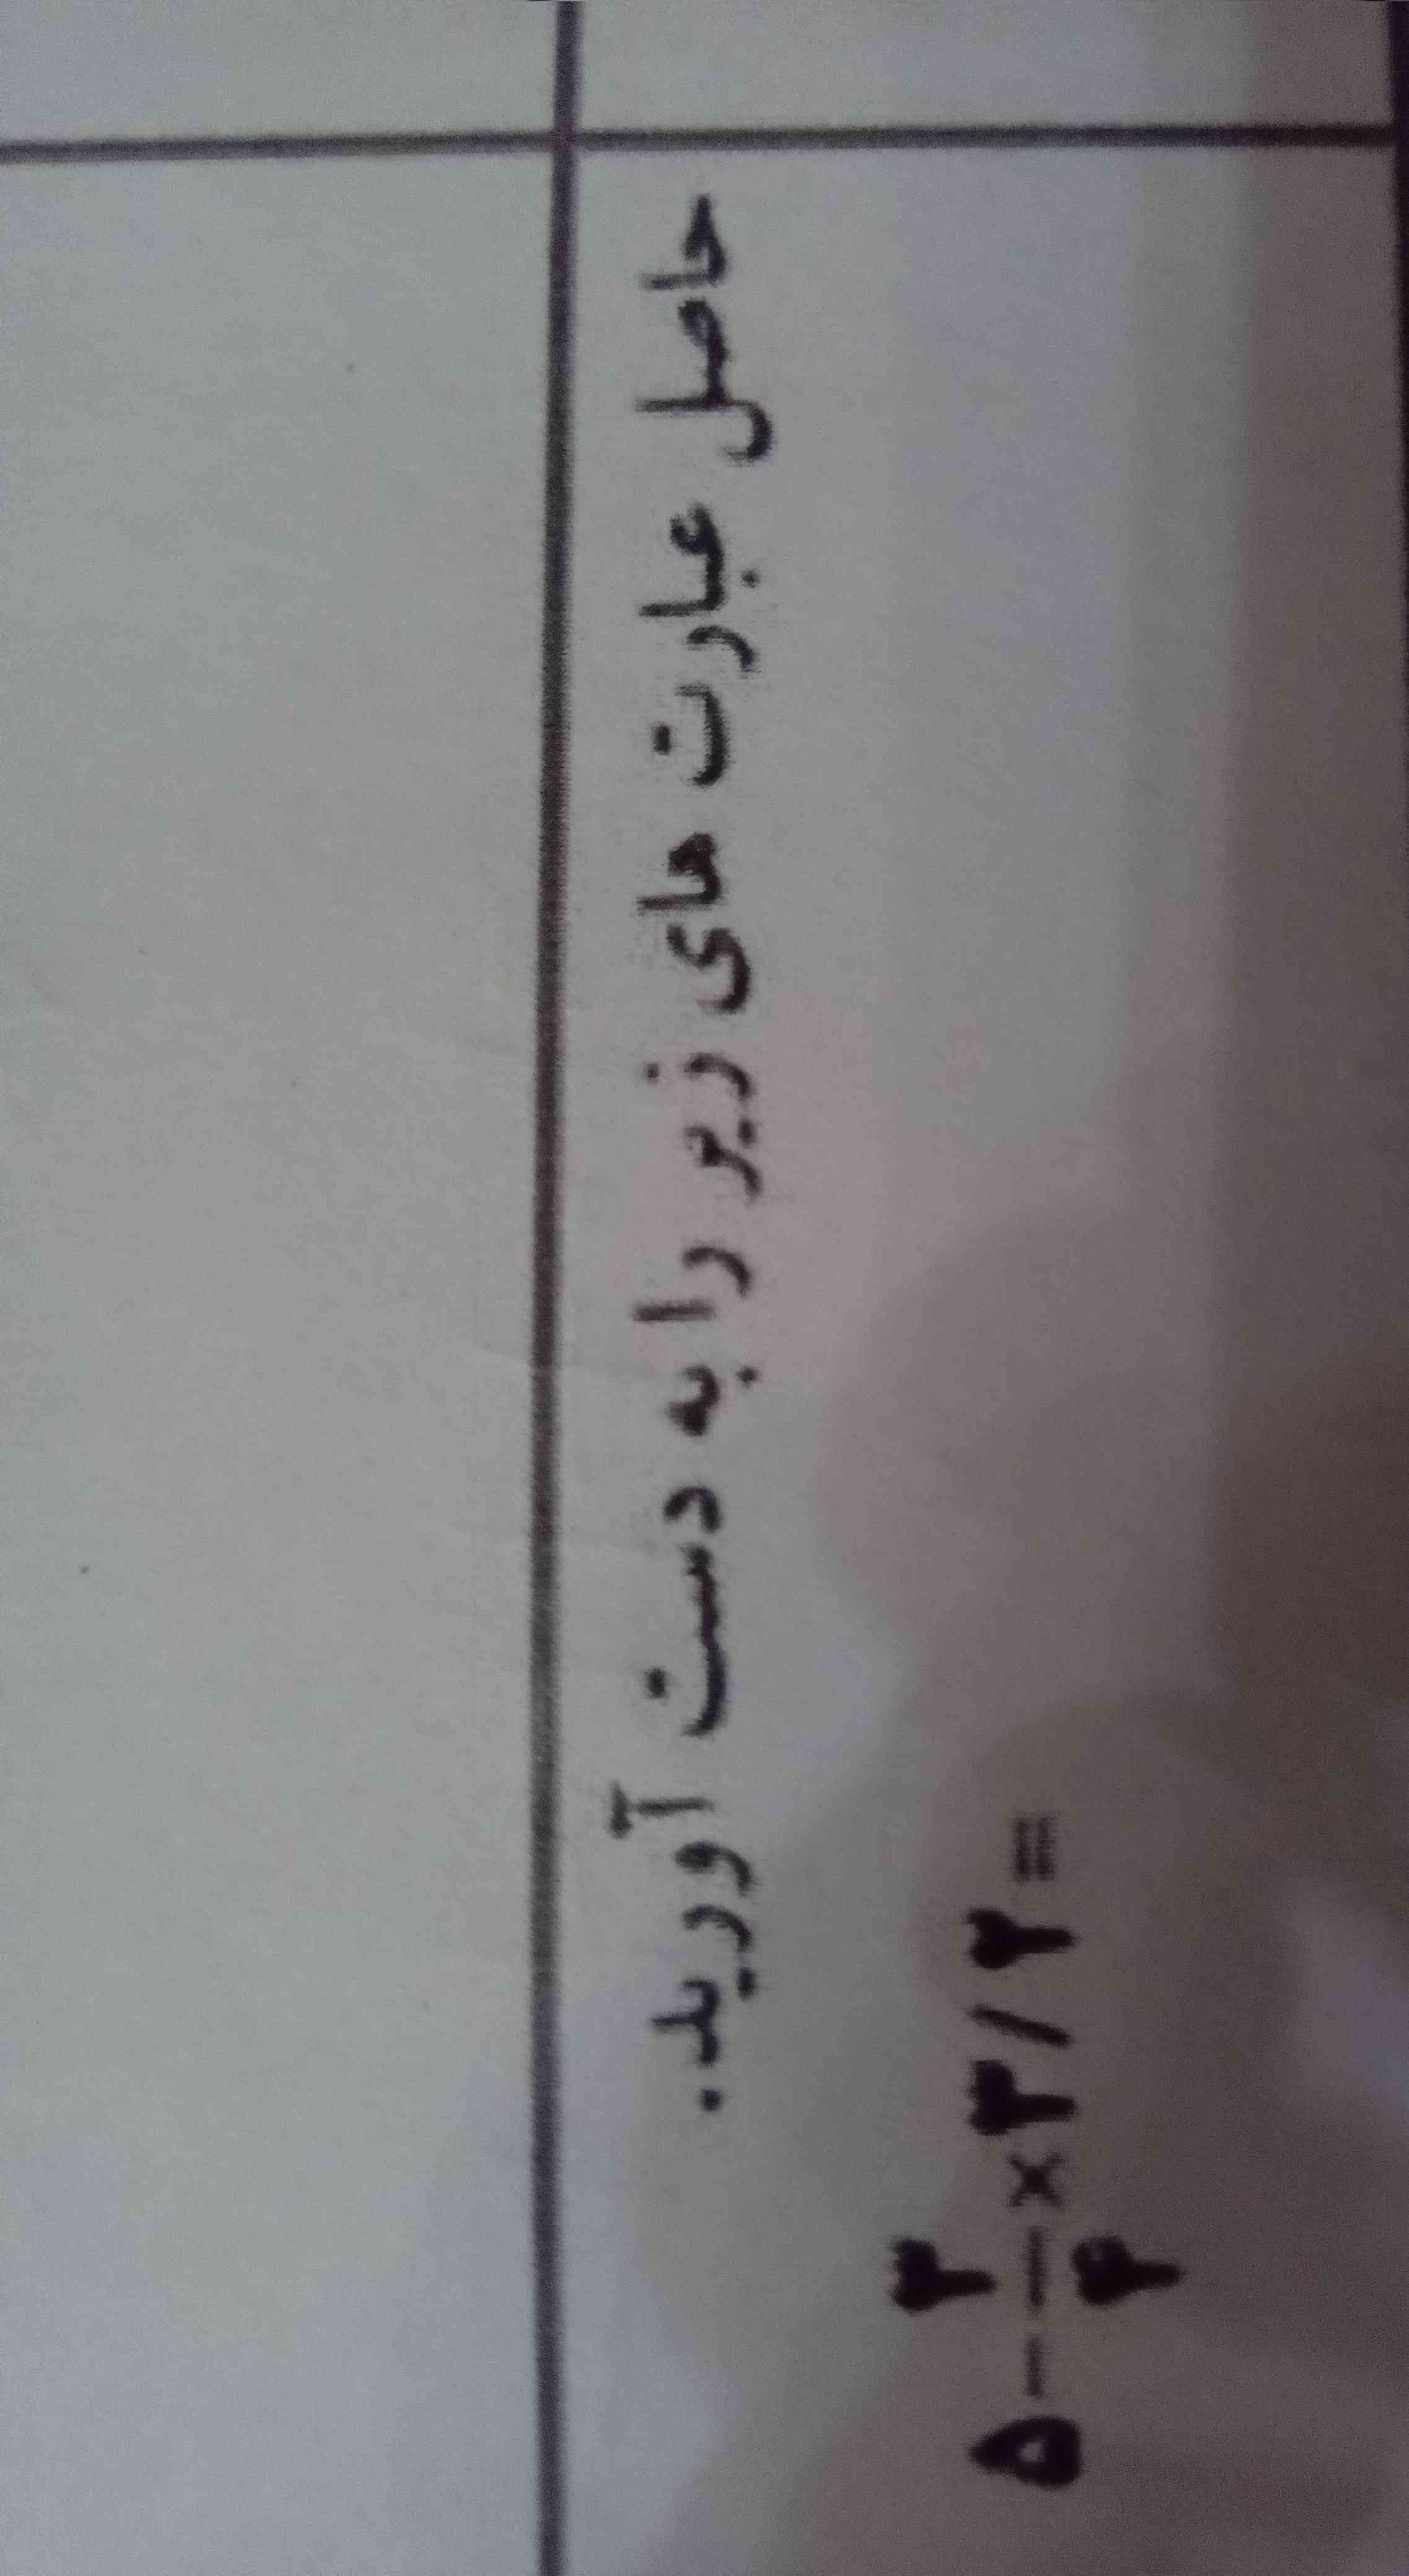 حاصل عبارت های زیر را به دست آورید.
۵-۳/۴×۳/۲=